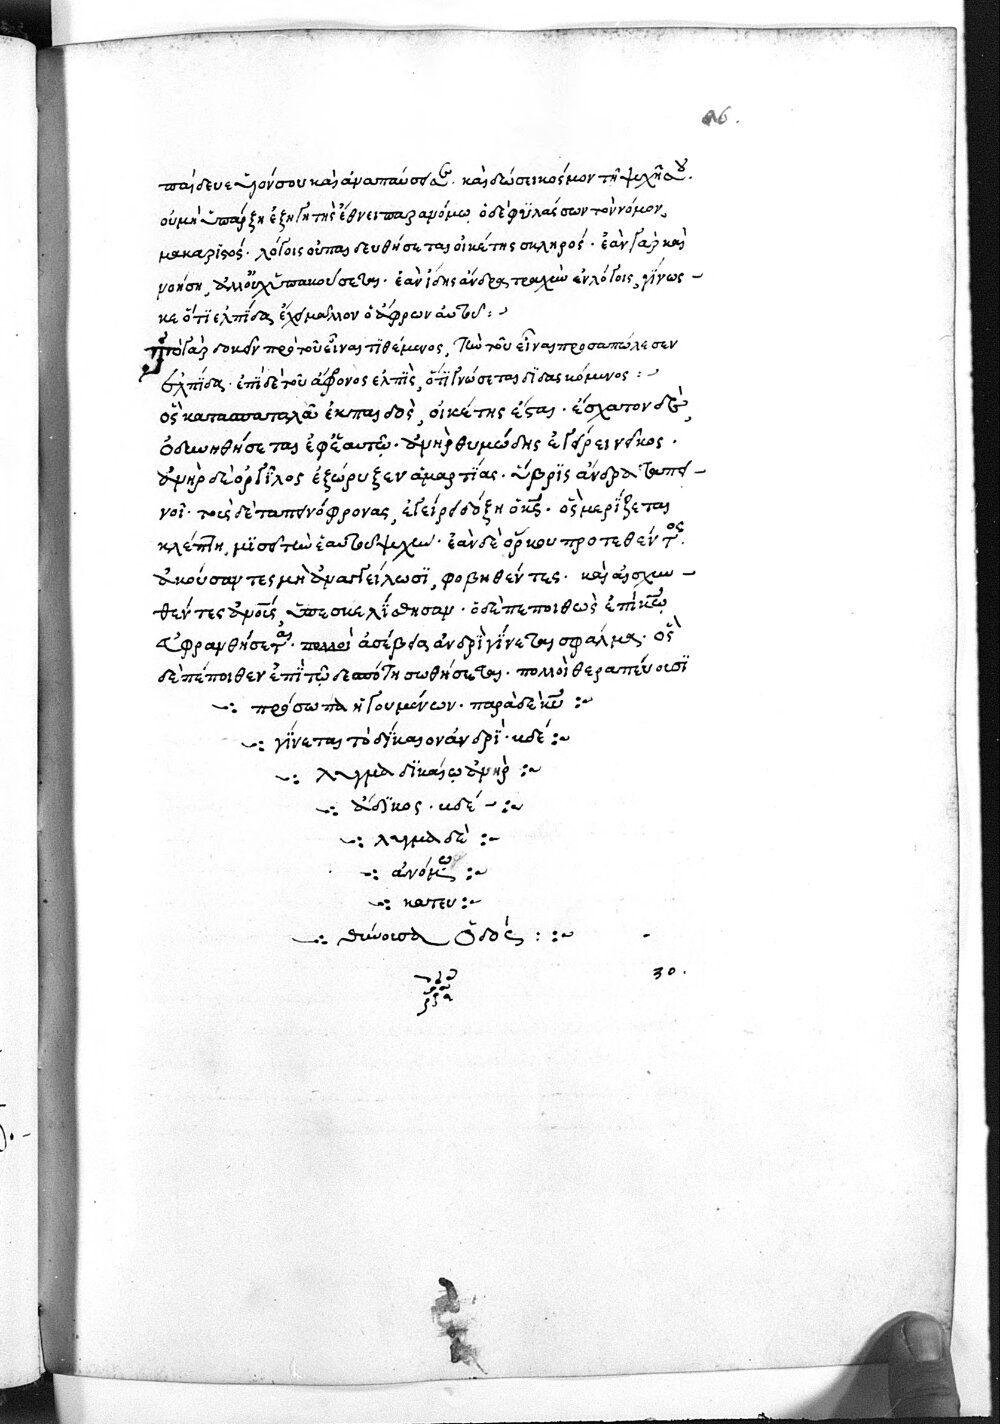 παίδευε υἱόν σου καὶ ἀναπαύσει σε. καὶ δώσει κόσμον τῇ ψυχῇ σου.
οὐ μὴ ὑπάρξῃ ἐξηγητὴς ἔθνει παρανόμῳ. ὁ δὲ φυλάσσων τὸν νόμον,
μακαριστός. λόγοις οὐ παιδευθήσεται οἰκέτης σκληρός. ἐὰν γὰρ καὶ
νοήσῃ, ἀλλ' οὐχ ὑπακούσεται. ἐὰν ἴδης ἄνδρα ταχὺν ἐν λόγοις, γίνως
κε ὅτι ἐλπίδα ἔχει μᾶλλον ὁ ἄφρων αὐτοῦ :
γὰρ πρὸ τοῦ εἶναι τιθέμενος, τὴν τοῦ εἶναι προσαπώλεσεν
ἐλπίδα. ἐπὶ δὲ τοῦ ἄφρονος ἐλπὶς, ὅτι γνώσεται διδασκόμενος :
ὃς κατασπαταλᾶ ἐκ παιδὸς, οἰκέτης ἔσται. ἔσχατον δὲ,
ὀδυνηθήσεται ἐφ' ἑαυτῷ. ἀνὴρ θυμώδης ἐγείρει νεῖκος.
ἀνὴρ δὲ ὀργίλος ἐξώρυξεν ἁμαρτίας. ὕβρις ἄνδρα ταπει
νοῖ. τοὺς δὲ ταπεινόφρονας, ἐγείρει δόξη κς. ὃς μερίζεται
κλέπτῃ, μισεῖ τὴν ἑαυτοῦ ψυχήν. ἐὰν δὲ ὅρκου προτεθέντος
ἀκούσαντες μὴ ἀναγγείλωσι, φοβηθέντες. καὶ αἰσχυν
θέντες ἀνους, ὑπεσκελίσθησαν. ὁ δὲ πεποιθὼς ἐπὶ κω
εὐφρανθήσεται. ἀσέβεια ἀνδρὶ γίνεται σφάλμα. ὃς
δὲ πέποιθεν ἐπὶ τῷ δεσπότῃ σωθήσεται. πολλοὶ θεραπεύουσι
πρόσωπα ἡγουμένων. παρὰ δὲ κυ
γίνεται τὸ δίκαιον ἀνδρί. βδέ
λυγμα δικαίῳ ἀνὴρ
ἄδικος. βδέ
λυγμα δὲ
ἀνόμῳ
κατευ
θύνουσα ὁδός :
30.